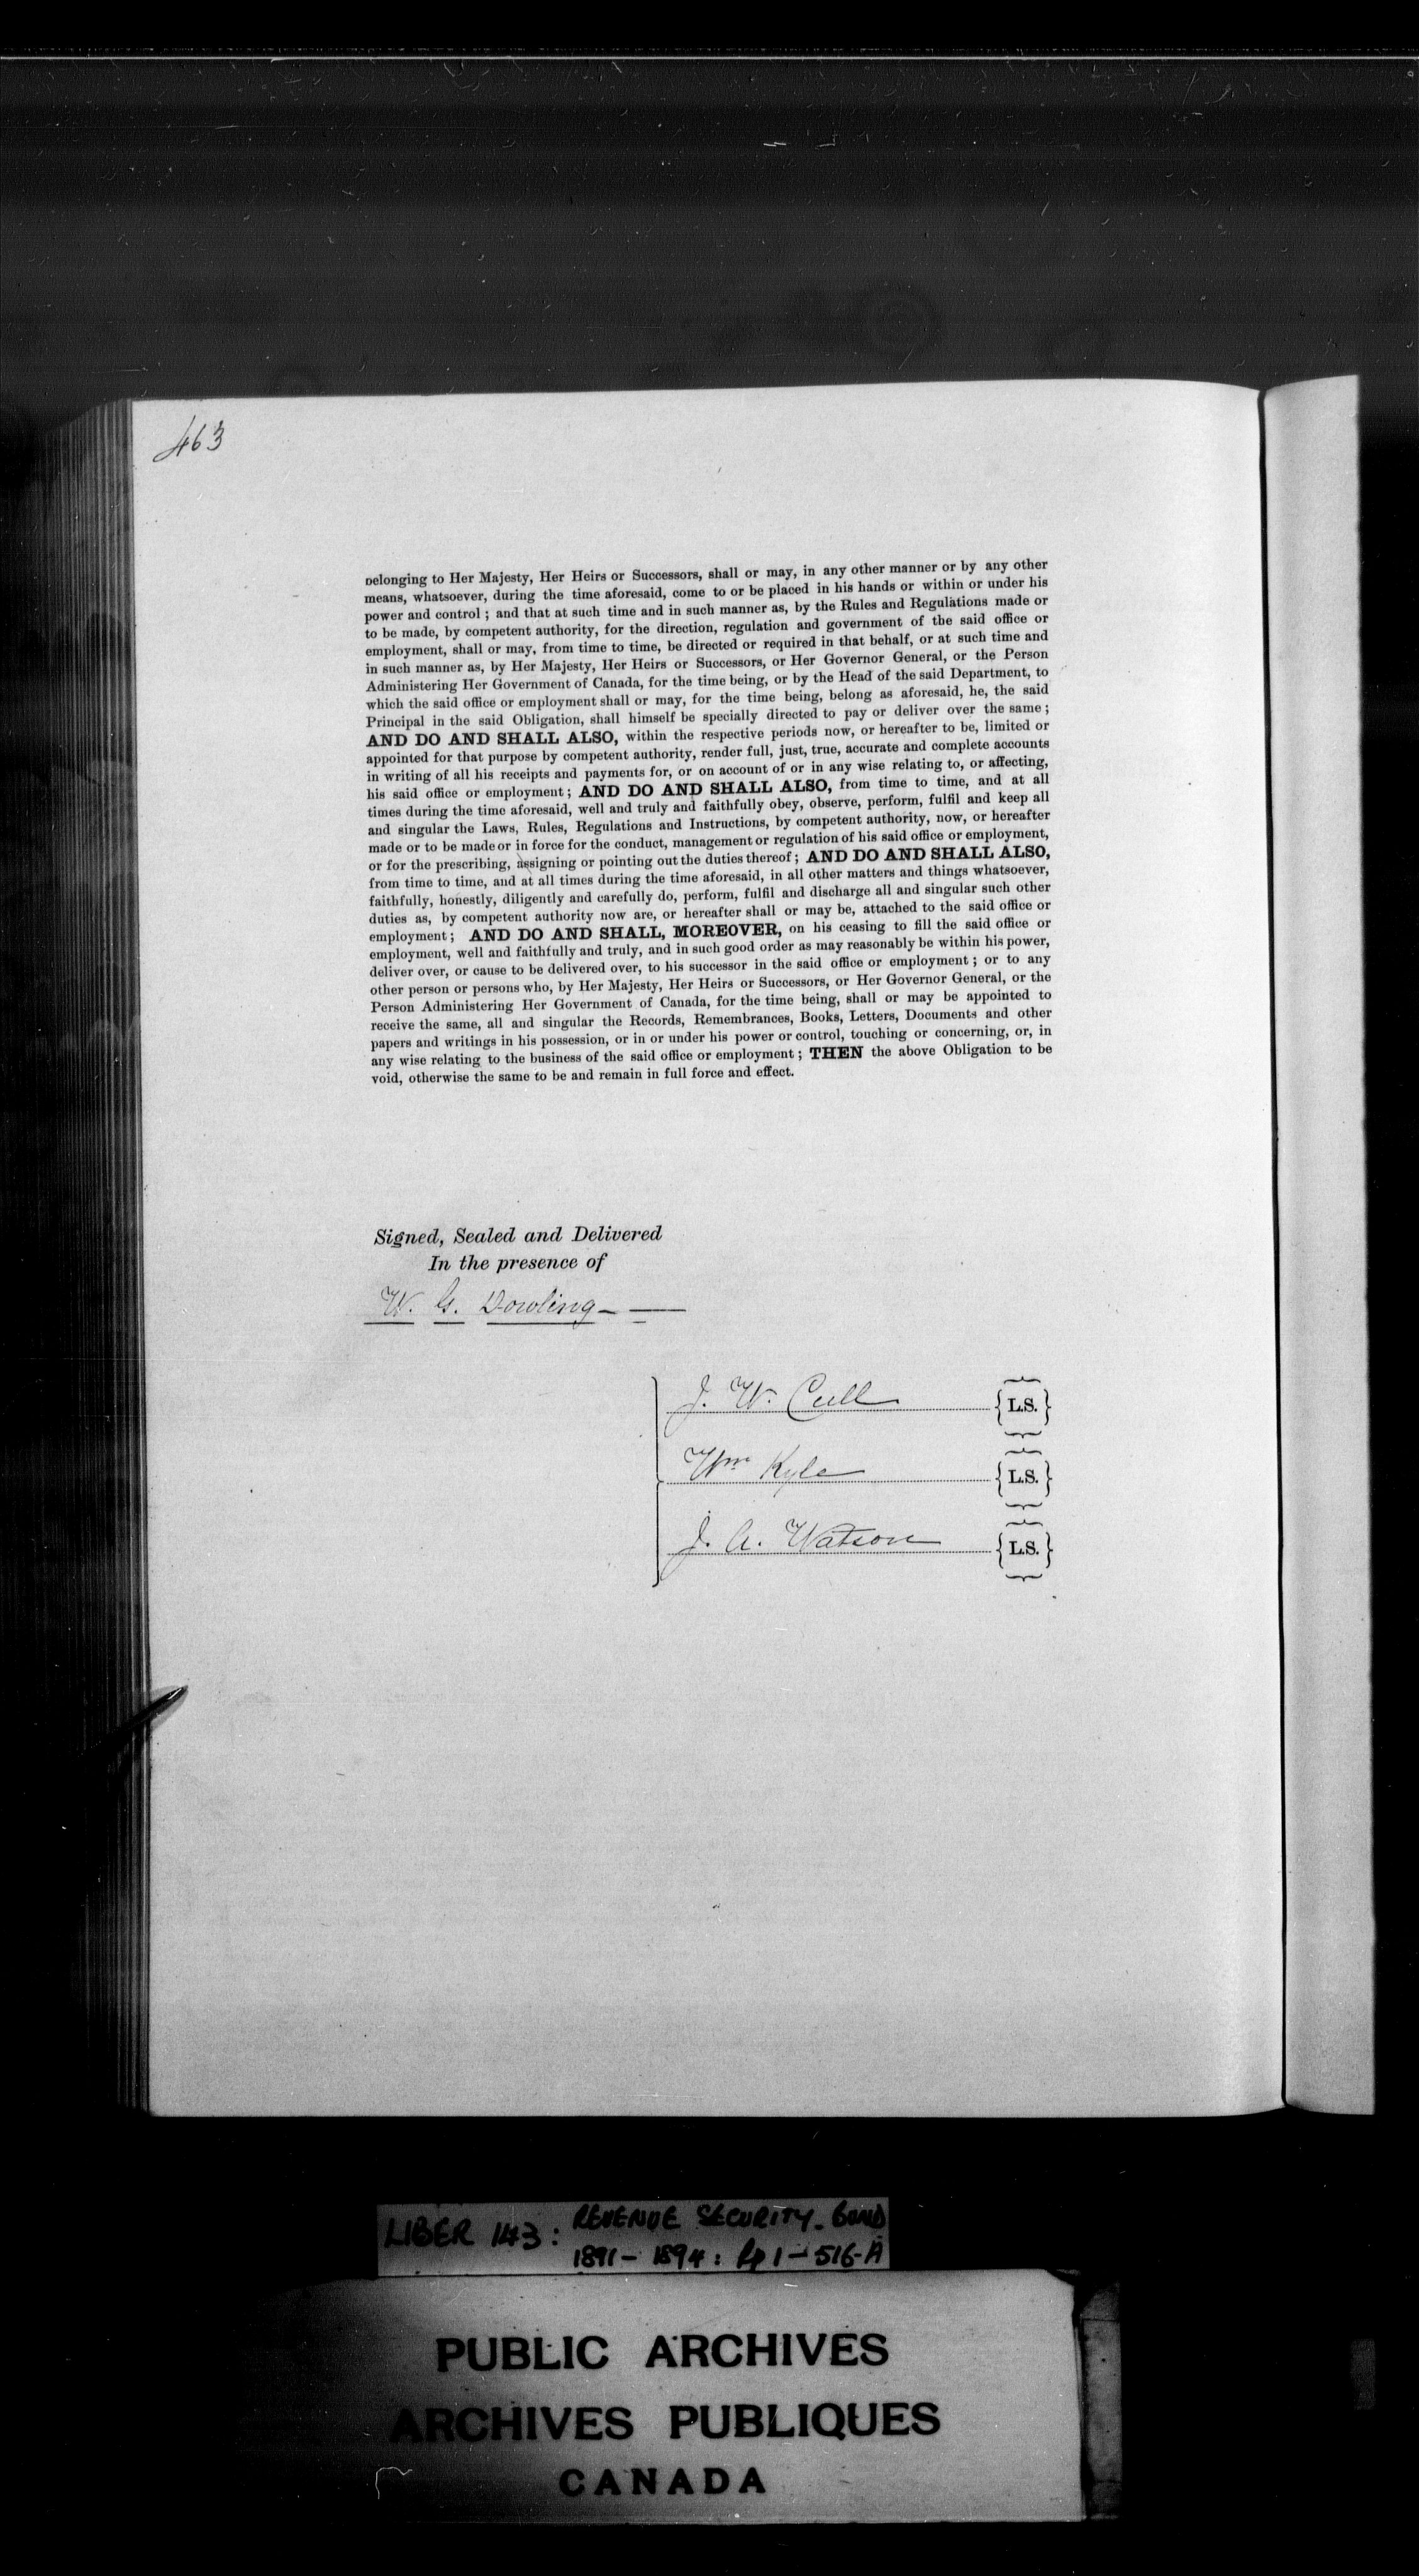 463
belonging to Her Majesty, Her Heirs or Successors, shall or may, in any other manner or by any other
means, whatsoever, during the time aforesaid, come to or be placed in his hands or within or under his
power and control ; and that at such time and in such manner as, by the Rules and Regulations made or
to be made, by competent authority, for the direction, regulation and government of the said office or
employment, shall or may, from time to time, be directed or required in that behalf, or at such time and
in such manner as, by Her Majesty, Her Heirs or Successors, or Her Governor General, or the Person
Administering Her Government of Canada, for the time being, or by the Head of the said Department, to
which the said office or employment shall or may, for the time being, belong as aforesaid, he, the said
Principal in the said Obligation, shall himself be specially directed to pay or deliver over the same ;
AND DO AND SHALL ALSO, within the respective periods now, or hereafter to be, limited or
appointed for that purpose by competent authority, render full, just, true, accurate and complete accounts
in writing of all his receipts and payments for, or on account of or in any wise relating to, or affecting,
his said office or employment ; AND DO AND SHALL ALSO, from time to time, and at all
times during the time aforesaid, well and truly and faithfully obey, observe, perform, fulfil and keep all
and singular the Laws, Rules, Regulations and Instructions, by competent authority, now, or hereafter
made or to be made or in force for the conduct, management or regulation of his said office or employment,
or for the prescribing, assigning or pointing out the duties thereof ; AND DO AND SHALL ALSO,
from time to time, and at all times during the time aforesaid, in all other matters and things whatsoever,
faithfully, honestly, diligently and carefully do, perform, fulfil and discharge all and singular such other
duties as, by competent authority now are, or hereafter shall or may be, attached to the said office or
employment ; AND DO AND SHALL, MOREOVER, on his ceasing to fill the said office or
employment, well and faithfully and truly, and in such good order as may reasonably be within his power,
deliver over, or cause to be delivered over, to his successor in the said office or employment ; or to any
other person or persons who, by Her Majesty, Her Heirs or Successors, or Her Governor General, or the
Person Administering Her Government of Canada, for the time being, shall or may be appointed to
receive the same, all and singular the Records, Remembrances, Books, Letters, Documents and other
papers and writings in his possession, or in or under his power or control, touching or concerning, or, in
any wise relating to the business of the said office or employment ; THEN the above Obligation to be
void, otherwise the same to be and remain in full force and effect.
Signed, Sealed and Delivered
In the presence of
W. G. Dowling
J. W. Cull {L.S.}
Wm Kyle {L.S.}
J. A. Watson {L.S.}
LIBER 143: REVENUE SECURITY. BOND
1891 - 1894: pp 1 - 516-A
PUBLIC ARCHIVES
ARCHIVES PUBLIQUES
CANADA